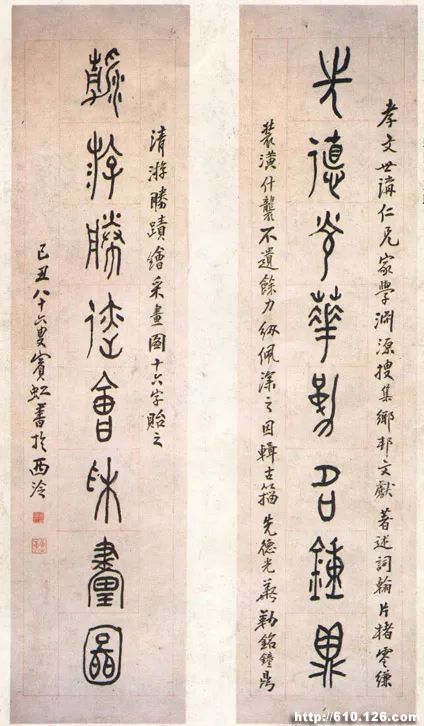 孝文世講仁兄家學淵源搜集鄉邦文獻著述詞翰片楮零縑
先德光華勒名鍾鼎
裝潢什襲不遺餘力紉佩深之因輯古籀先德光華勒銘鐘鼎
清游勝蹟繪采畫圖十六字貽之
游勝迹會采畫圖
己丑八十六叟賓虹書於西泠
http://610.126.com/